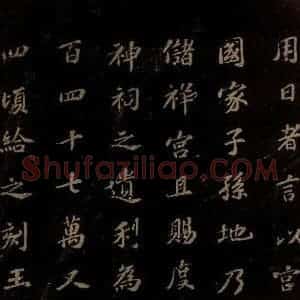 用日者言以宮
國家子孫地乃
儲祥宮且賜度
神祠之遺利為
百四十七萬又
四頃給之刻玉
Shufaziliao.COM